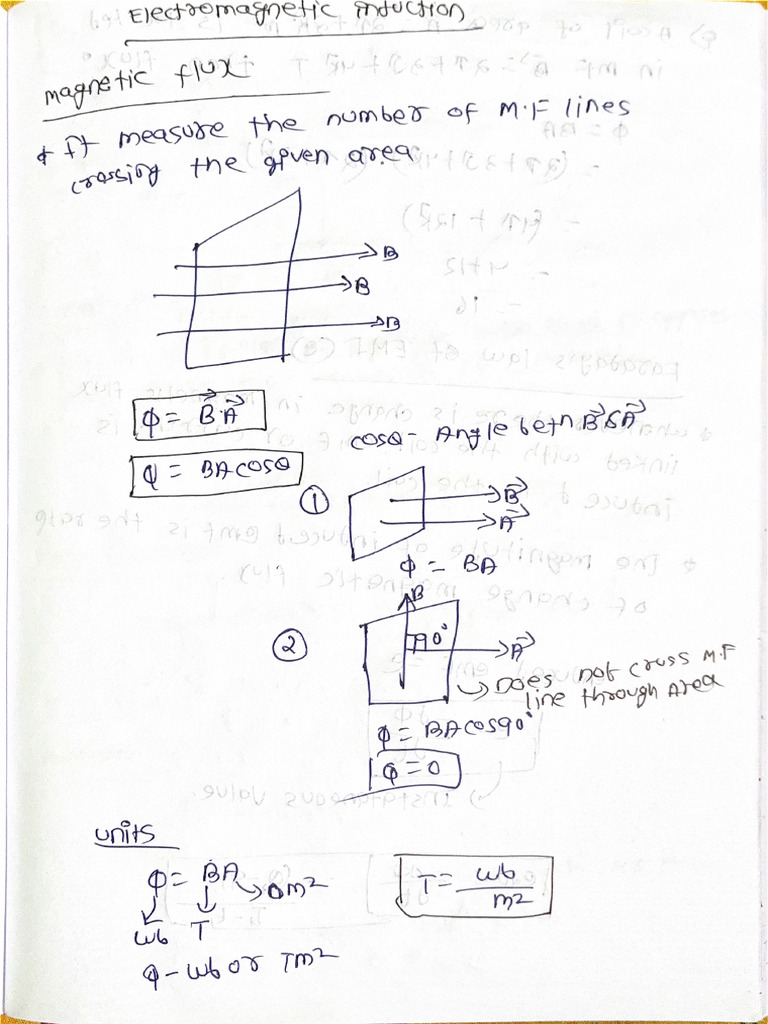 Electromagnetic induction
magnetic flux
* It measure the number of M.F lines
crossing the given area
B
B
B
ϕ = B⃗·A⃗
cosθ - Angle betn B⃗ & A⃗
ϕ = BAcosθ
① B⃗
A⃗
ϕ = BA
B
② 90° A⃗
Does not cross M.F
line through Area
ϕ = BAcos90°
ϕ = 0
units
ϕ = BA → m²
Wb T
T = wb/m²
ϕ - wb or Tm²